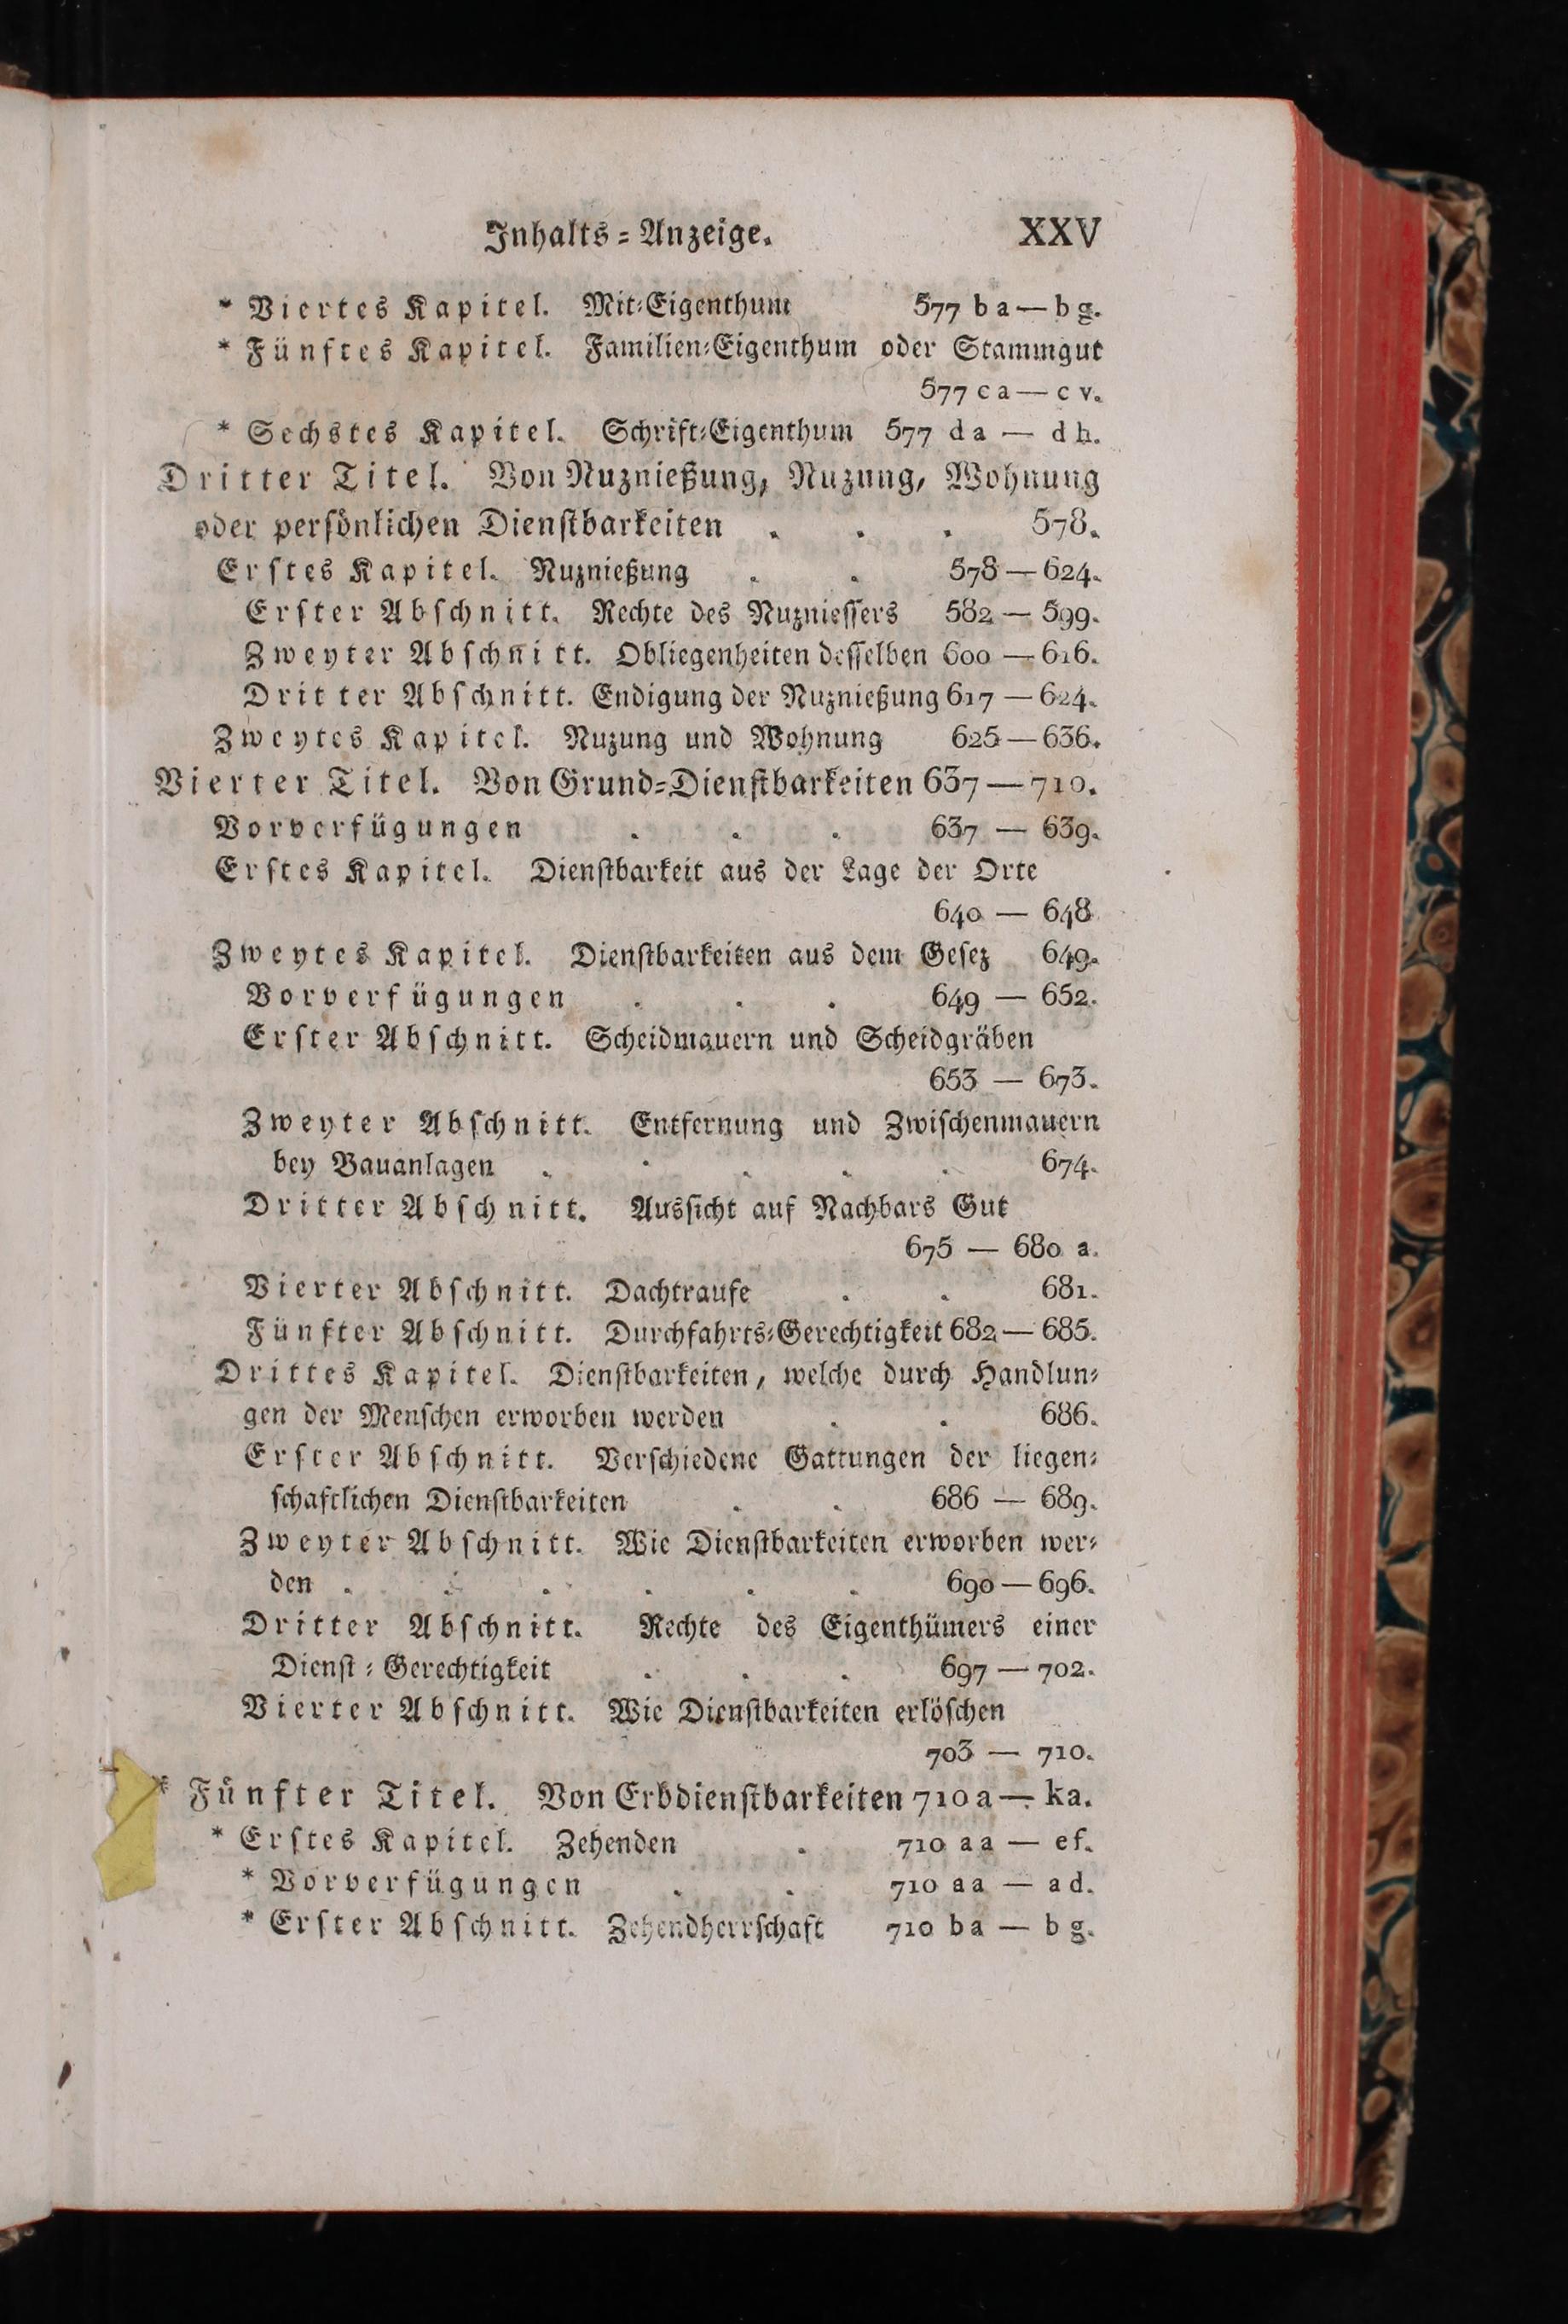 Inhalts-Anzeige. XXV
* Viertes Kapitel. Mit-Eigenthum 577 ba — bg.
* Fünftes Kapitel. Familien-Eigenthum oder Stammgut
577 ca — cv.
* Sechstes Kapitel. Schrift-Eigenthum 577 da — dh.
Dritter Titel. Von Nuznießung, Nuzung, Wohnung
oder persönlichen Dienstbarkeiten . . . 578.
Erstes Kapitel. Nuznießung . . 578 — 624.
Erster Abschnitt. Rechte des Nuzniessers 582 — 599.
Zweyter Abschnitt. Obliegenheiten desselben 600 — 616.
Dritter Abschnitt. Endigung der Nuznießung 617 — 624.
Zweytes Kapitel. Nuzung und Wohnung 625 — 636.
Vierter Titel. Von Grund-Dienstbarkeiten 637 — 710.
Vorverfügungen . . . 637 — 639.
Erstes Kapitel. Dienstbarkeit aus der Lage der Orte
640 — 648
Zweytes Kapitel. Dienstbarkeiten aus dem Gesez 649.
Vorverfügungen . . . 649 — 652.
Erster Abschnitt. Scheidmauern und Scheidgräben
653 — 673.
Zweyter Abschnitt. Entfernung und Zwischenmauern
bey Bauanlagen . . . . . 674.
Dritter Abschnitt. Aussicht auf Nachbars Gut
675 — 680 a.
Vierter Abschnitt. Dachtraufe . . 681.
Fünfter Abschnitt. Durchfahrts-Gerechtigkeit 682 — 685.
Drittes Kapitel. Dienstbarkeiten, welche durch Handlun-
gen der Menschen erworben werden . . 686.
Erster Abschnitt. Verschiedene Gattungen der liegen-
schaftlichen Dienstbarkeiten . . 686 — 689.
Zweyter Abschnitt. Wie Dienstbarkeiten erworben wer-
den . . . . . . 690 — 696.
Dritter Abschnitt. Rechte des Eigenthümers einer
Dienst-Gerechtigkeit . . . 697 — 702.
Vierter Abschnitt. Wie Dienstbarkeiten erlöschen
703 — 710.
* Fünfter Titel. Von Erbdienstbarkeiten 710 a — ka.
* Erstes Kapitel. Zehenden . 710 aa — ef.
* Vorverfügungen . . 710 aa — ad.
* Erster Abschnitt. Zehendherrschaft 710 ba — bg.